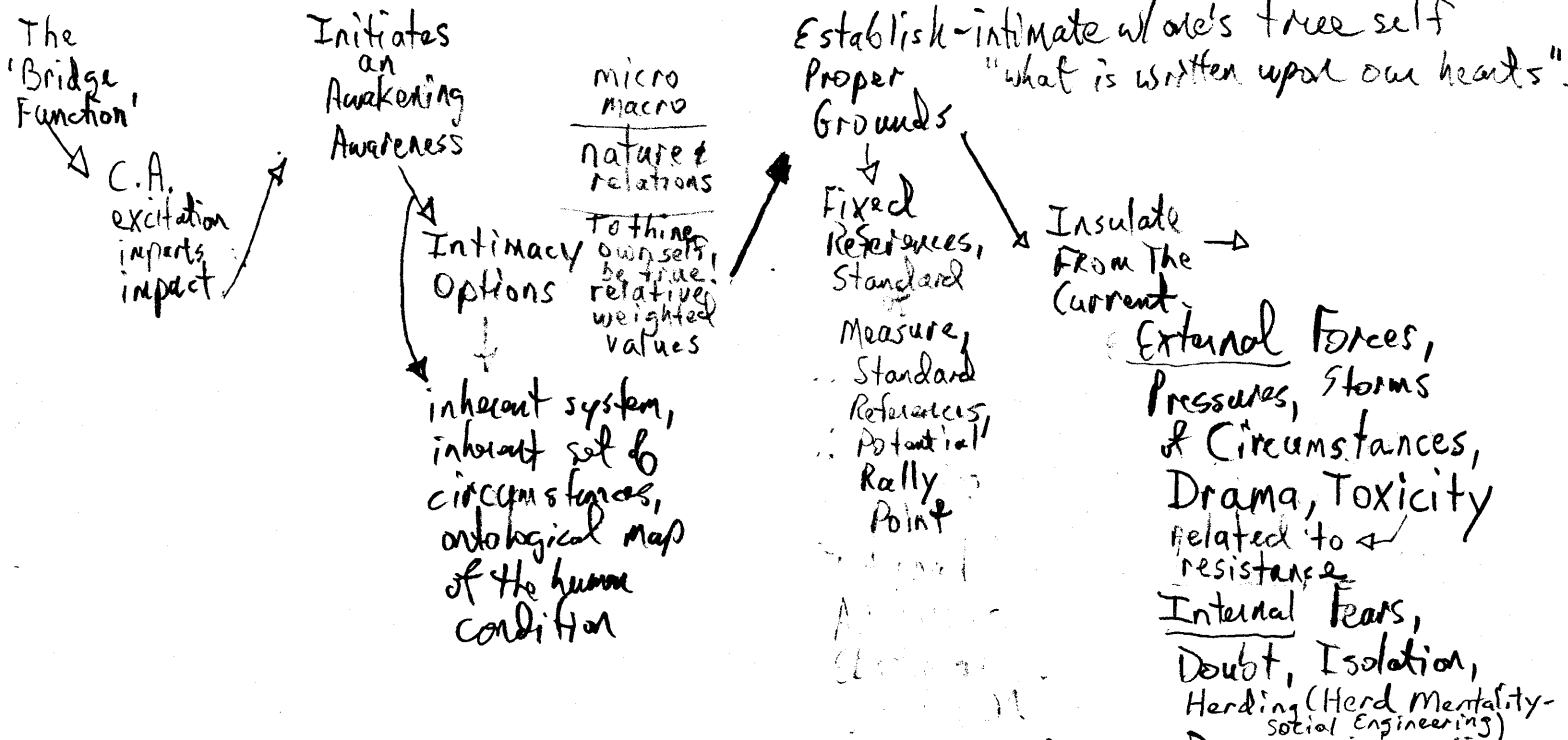 The
'Bridge
Function'
C.A.
excitation
imparts
impact
Initiates
an
Awakening
Awareness
Intimacy
Options
inherent system,
inherent set of
circumstances,
ontological map
of the human
condition
micro
macro
nature &
relations
To thine
own self,
be true!
relative
weighted
values
Establish-intimate w/ one's true self
Proper "what is written upon our hearts".
Grounds
Fixed
References,
Standard
Measure,
Standard
References,
Potential
Rally
Point
Insulate
From The
Current.
External Forces,
Pressures, Storms
of Circumstances,
Drama, Toxicity
related to
resistance
Internal Fears,
Doubt, Isolation,
Herding (Herd Mentality-
Social Engineering)